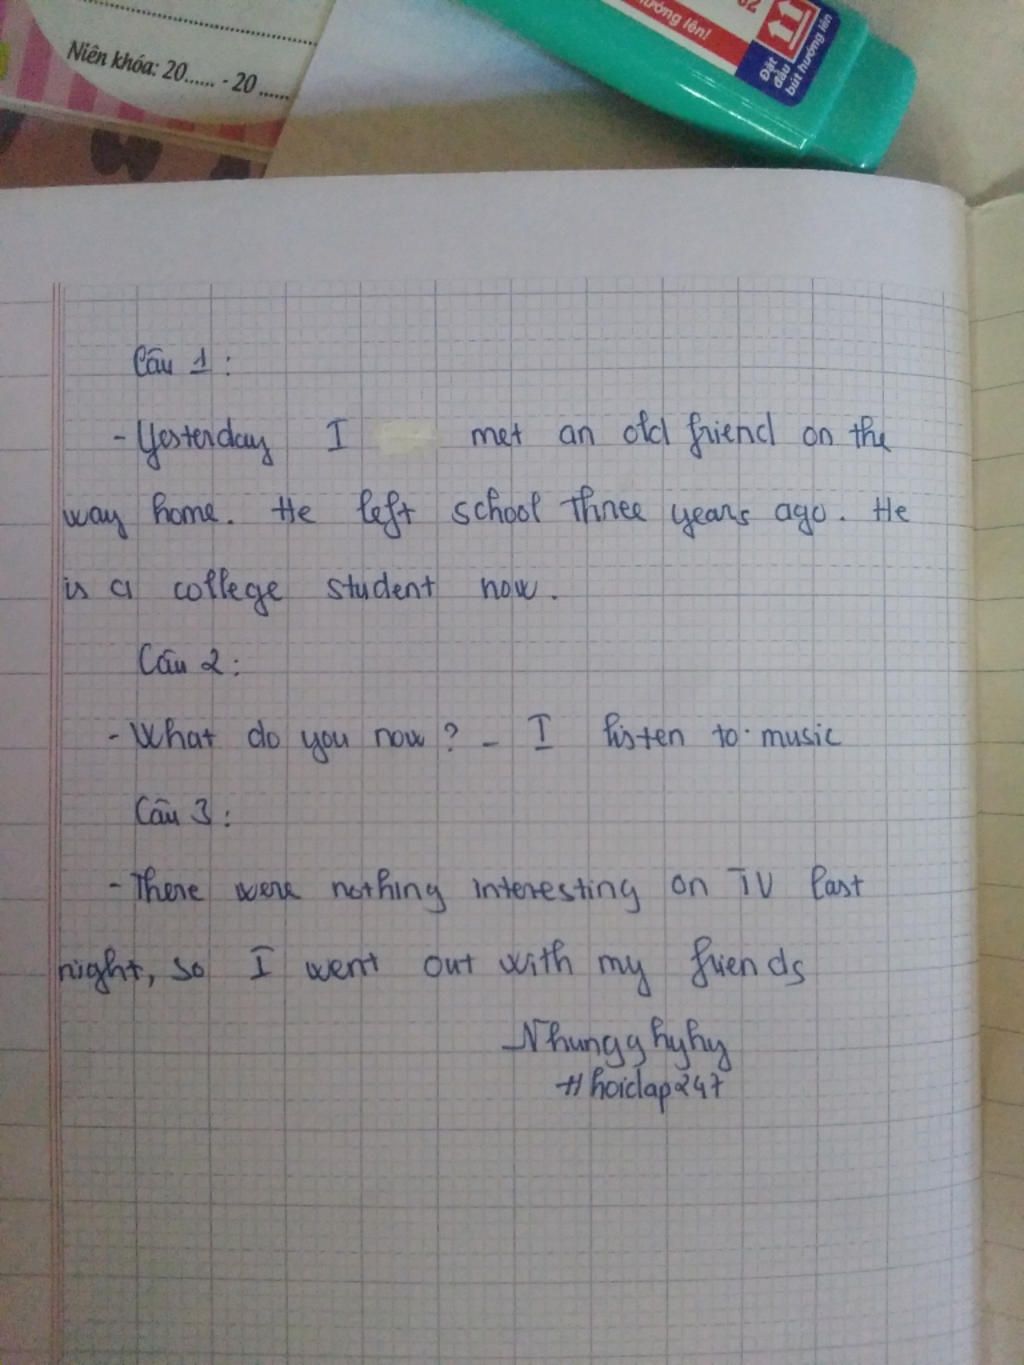 Niên khóa: 20...... - 20......
hướng lên!
02
Đặt
đầu
bút hướng lên
Câu 1:
- Yesterday I met an old friend on the
way home. He left school three years ago. He
is a college student now.
Câu 2:
- What do you now? - I listen to music
Câu 3:
- There were nothing interesting on TV last
night, so I went out with my friends
Nhungghyhy
#hoidap247